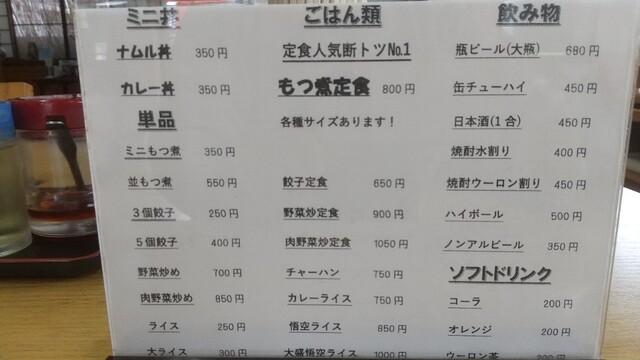 ミニ丼
ナムル丼 350円
カレー丼 350円
単品
ミニもつ煮 350円
並もつ煮 550円
3個餃子 250円
5個餃子 400円
野菜炒め 700円
肉野菜炒め 850円
ライス 250円
大ライス 300円
ごはん類
定食人気断トツ№1
もつ煮定食 800円
各種サイズあります!
餃子定食 650円
野菜炒定食 900円
肉野菜炒定食 1050円
チャーハン 750円
カレーライス 750円
悟空ライス 850円
大盛悟空ライス 1000円
飲み物
瓶ビール(大瓶) 680円
缶チューハイ 450円
日本酒(1合) 450円
焼酎水割り 400円
焼酎ウーロン割り 450円
ハイボール 500円
ノンアルビール 350円
ソフトドリンク
コーラ 200円
オレンジ 200円
ウーロン茶 200円